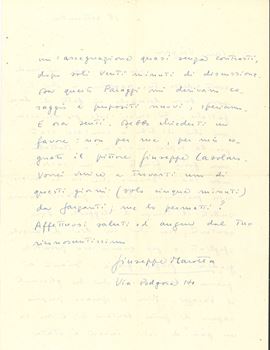 un'assegnazione quasi senza contrasti,
dopo soli venti minuti di discussione.
da questo Viareggio mi derivano co-
raggio e propositi nuovi, speriamo.
E ora senti. Debbo chiederti un
favore: non per me, per mio co-
gnato il pittore Giuseppe Casolaro.
Vorrei venire a trovarti uno di
questi giorni (solo cinque minuti)
da Garzanti; me lo permetti?
Affettuosi saluti ed auguri dal tuo
riconoscentissimo
Giuseppe Marotta
Via Podgora